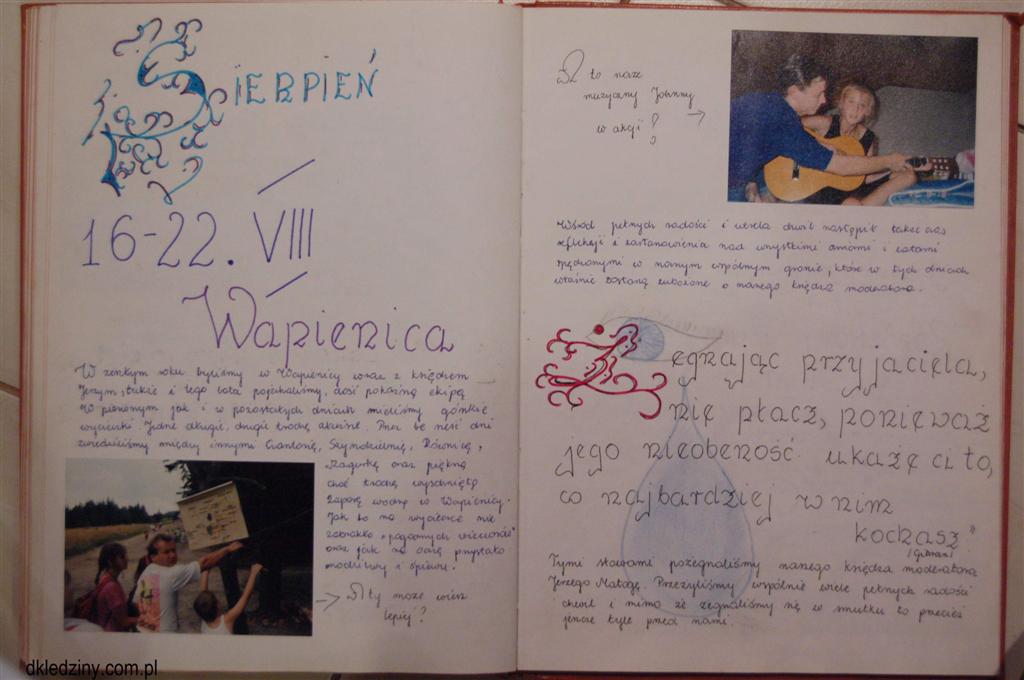 SIERPIEŃ
16-22. VIII
Wapienica
W zeszłym roku byliśmy w Wapienicy wraz z księdzem
Jerzym, także i tego lata pojechaliśmy, dość pokaźną ekipą
W pierwszym jak i w pozostałych dniach mieliśmy górskie
wycieczki. Jedne długie, drugie trochę krótsze. Przez te sześć dni
zwiedziliśmy między innymi Szyndzielnię, Równicę,
oraz piękną
choć trochę wyschniętą
zaporę wodną w Wapienicy.
Jak to na wycieczce nie
zabrakło „pogodnych wieczorów"
oraz jak na oazę przystało
modlitwy i śpiewu.
→ A ty może wiesz
lepiej?
A to nasz
muzyczny Johnny
w akcji! →
Wśród pełnych radości i wesela chwil nastąpił także czas
refleksji i zastanowienia nad wszystkimi dniami i latami
spędzonymi w naszym wspólnym gronie, które w tych dniach
właśnie zostaną zubożone o naszego księdza moderatora.
Żegnając przyjaciela,
nie płacz, ponieważ
jego nieobecność ukaże ci to,
co najbardziej w nim
kochasz"
(Gibran)
Tymi słowami pożegnaliśmy naszego księdza moderatora
Jerzego Matogę. Przeżyliśmy wspólnie wiele pełnych radości
chwil i mimo że żegnaliśmy się w smutku to przecież
jeszcze tyle przed nami.
dkledziny.com.pl